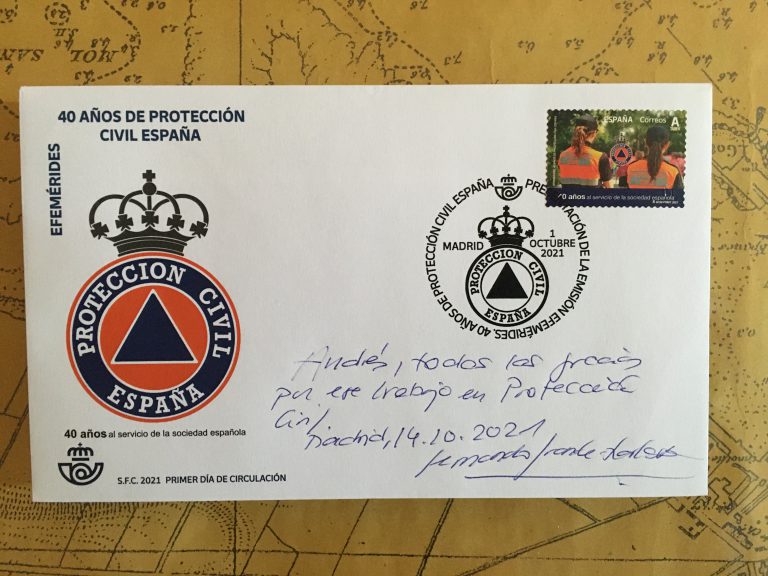 40 AÑOS DE PROTECCIÓN
CIVIL ESPAÑA
EFEMÉRIDES
PROTECCION CIVIL
ESPAÑA
40 años al servicio de la sociedad española
S.F.C. 2021 PRIMER DÍA DE CIRCULACIÓN
ESPAÑA Correos A
40 años al servicio de la sociedad española
40 AÑOS DE PROTECCIÓN CIVIL ESPAÑA
PRESENTACIÓN DE LA EMISIÓN EFEMÉRIDES.
MADRID
1
OCTUBRE
2021
PROTECCION CIVIL
ESPAÑA
Andrés, todas las gracias
por ese trabajo en Protección
Civil.
Madrid, 14.10.2021
Fernando
SAN
MOL